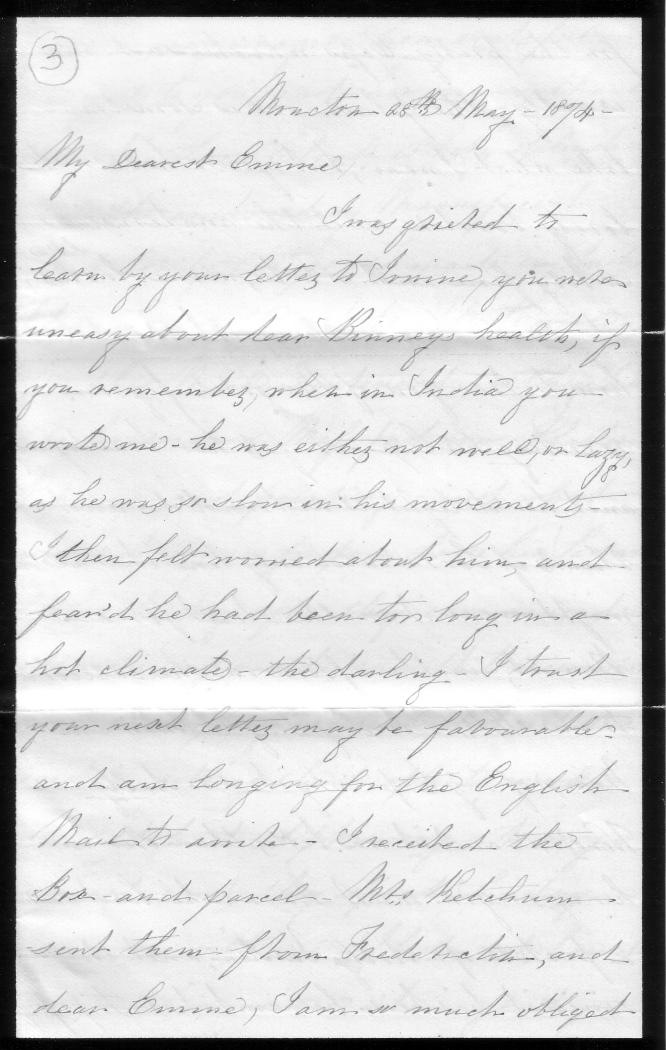 3
Moncton 28th May - 1874 -
My Dearest Emme
I was grieved to
learn by your letter to Irvine, you were
uneasy about dear Binneys health, if
you remember, when in India you
wrote me - he was either not well, or lazy,
as he was so slow in his movements -
I then felt worried about him, and
fear'd he had been too long in a
hot climate - the darling - I trust
your next letter may be favourable -
and am longing for the English
Mail to arrive - I received the
Box - and parcel - Mrs. Ketchum
sent them from Fredericton, and
dear Emme, I am so much obliged